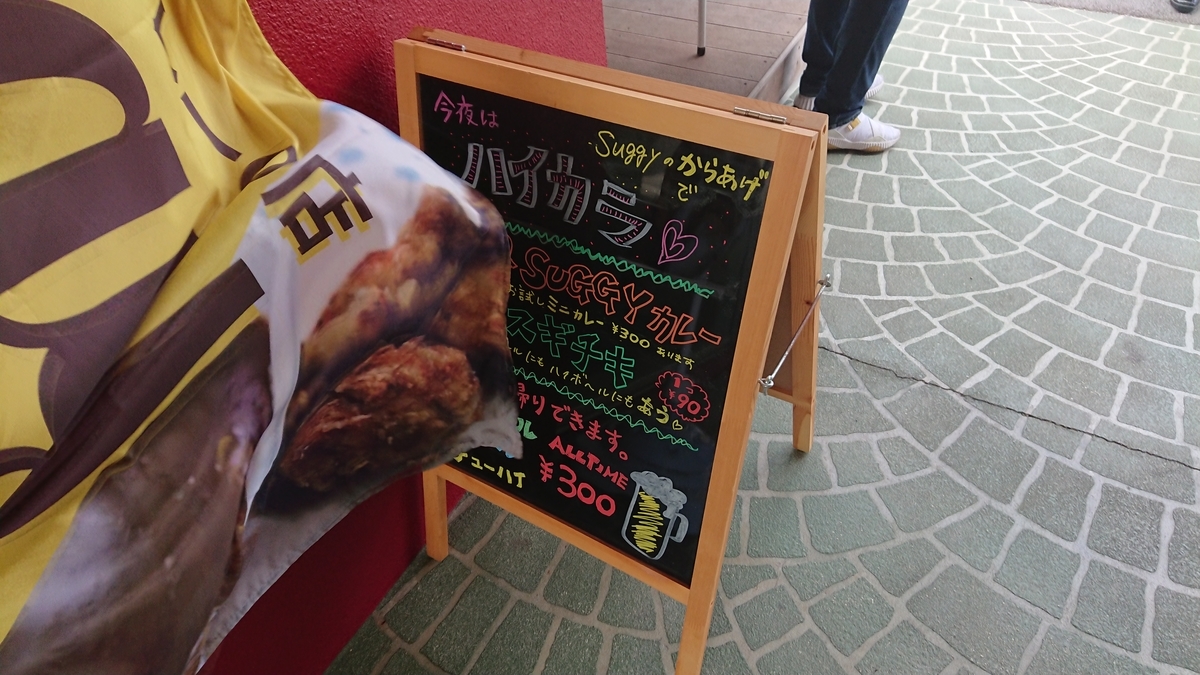 店
今夜は
Suggyのからあげ
で
ハイカラ
SUGGYカレー
お試しミニカレー ¥300 あります
スギチキ
ルにも ハイボールにも あう
1コ
¥90
帰りできます。
ル ALLTIME
チューハイ ¥300